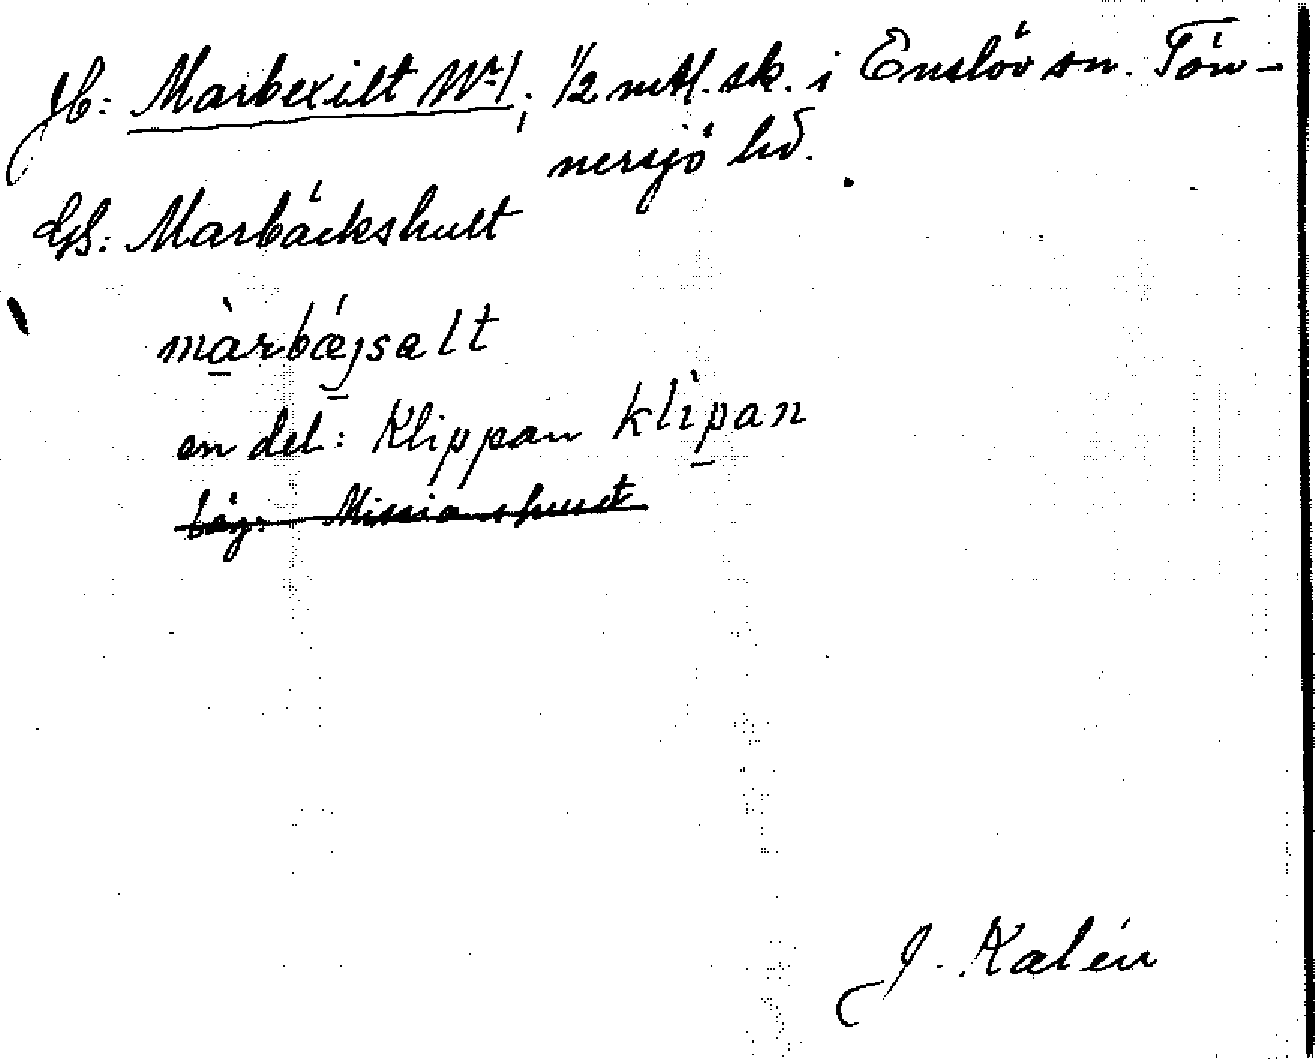 Jb: Marbexilt Nr 1; 1/2 mtl. sk. i Enslöv sn. Tön-
nersjö hd.
GS: Marbäckshult
màrbǽjsalt
en del: Klippan klìpan
läg: Missionshuset
J. Kalén